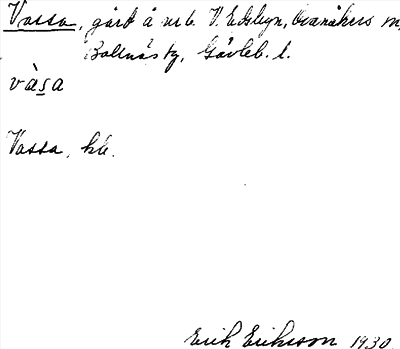 Vassa, gård å nr 6 V. Edsbyn, Ovanåkers sn,
Bollnäs tg, Gävleb. l.
vàsa
Vassa, hb.
Erik Eriksson 1930.